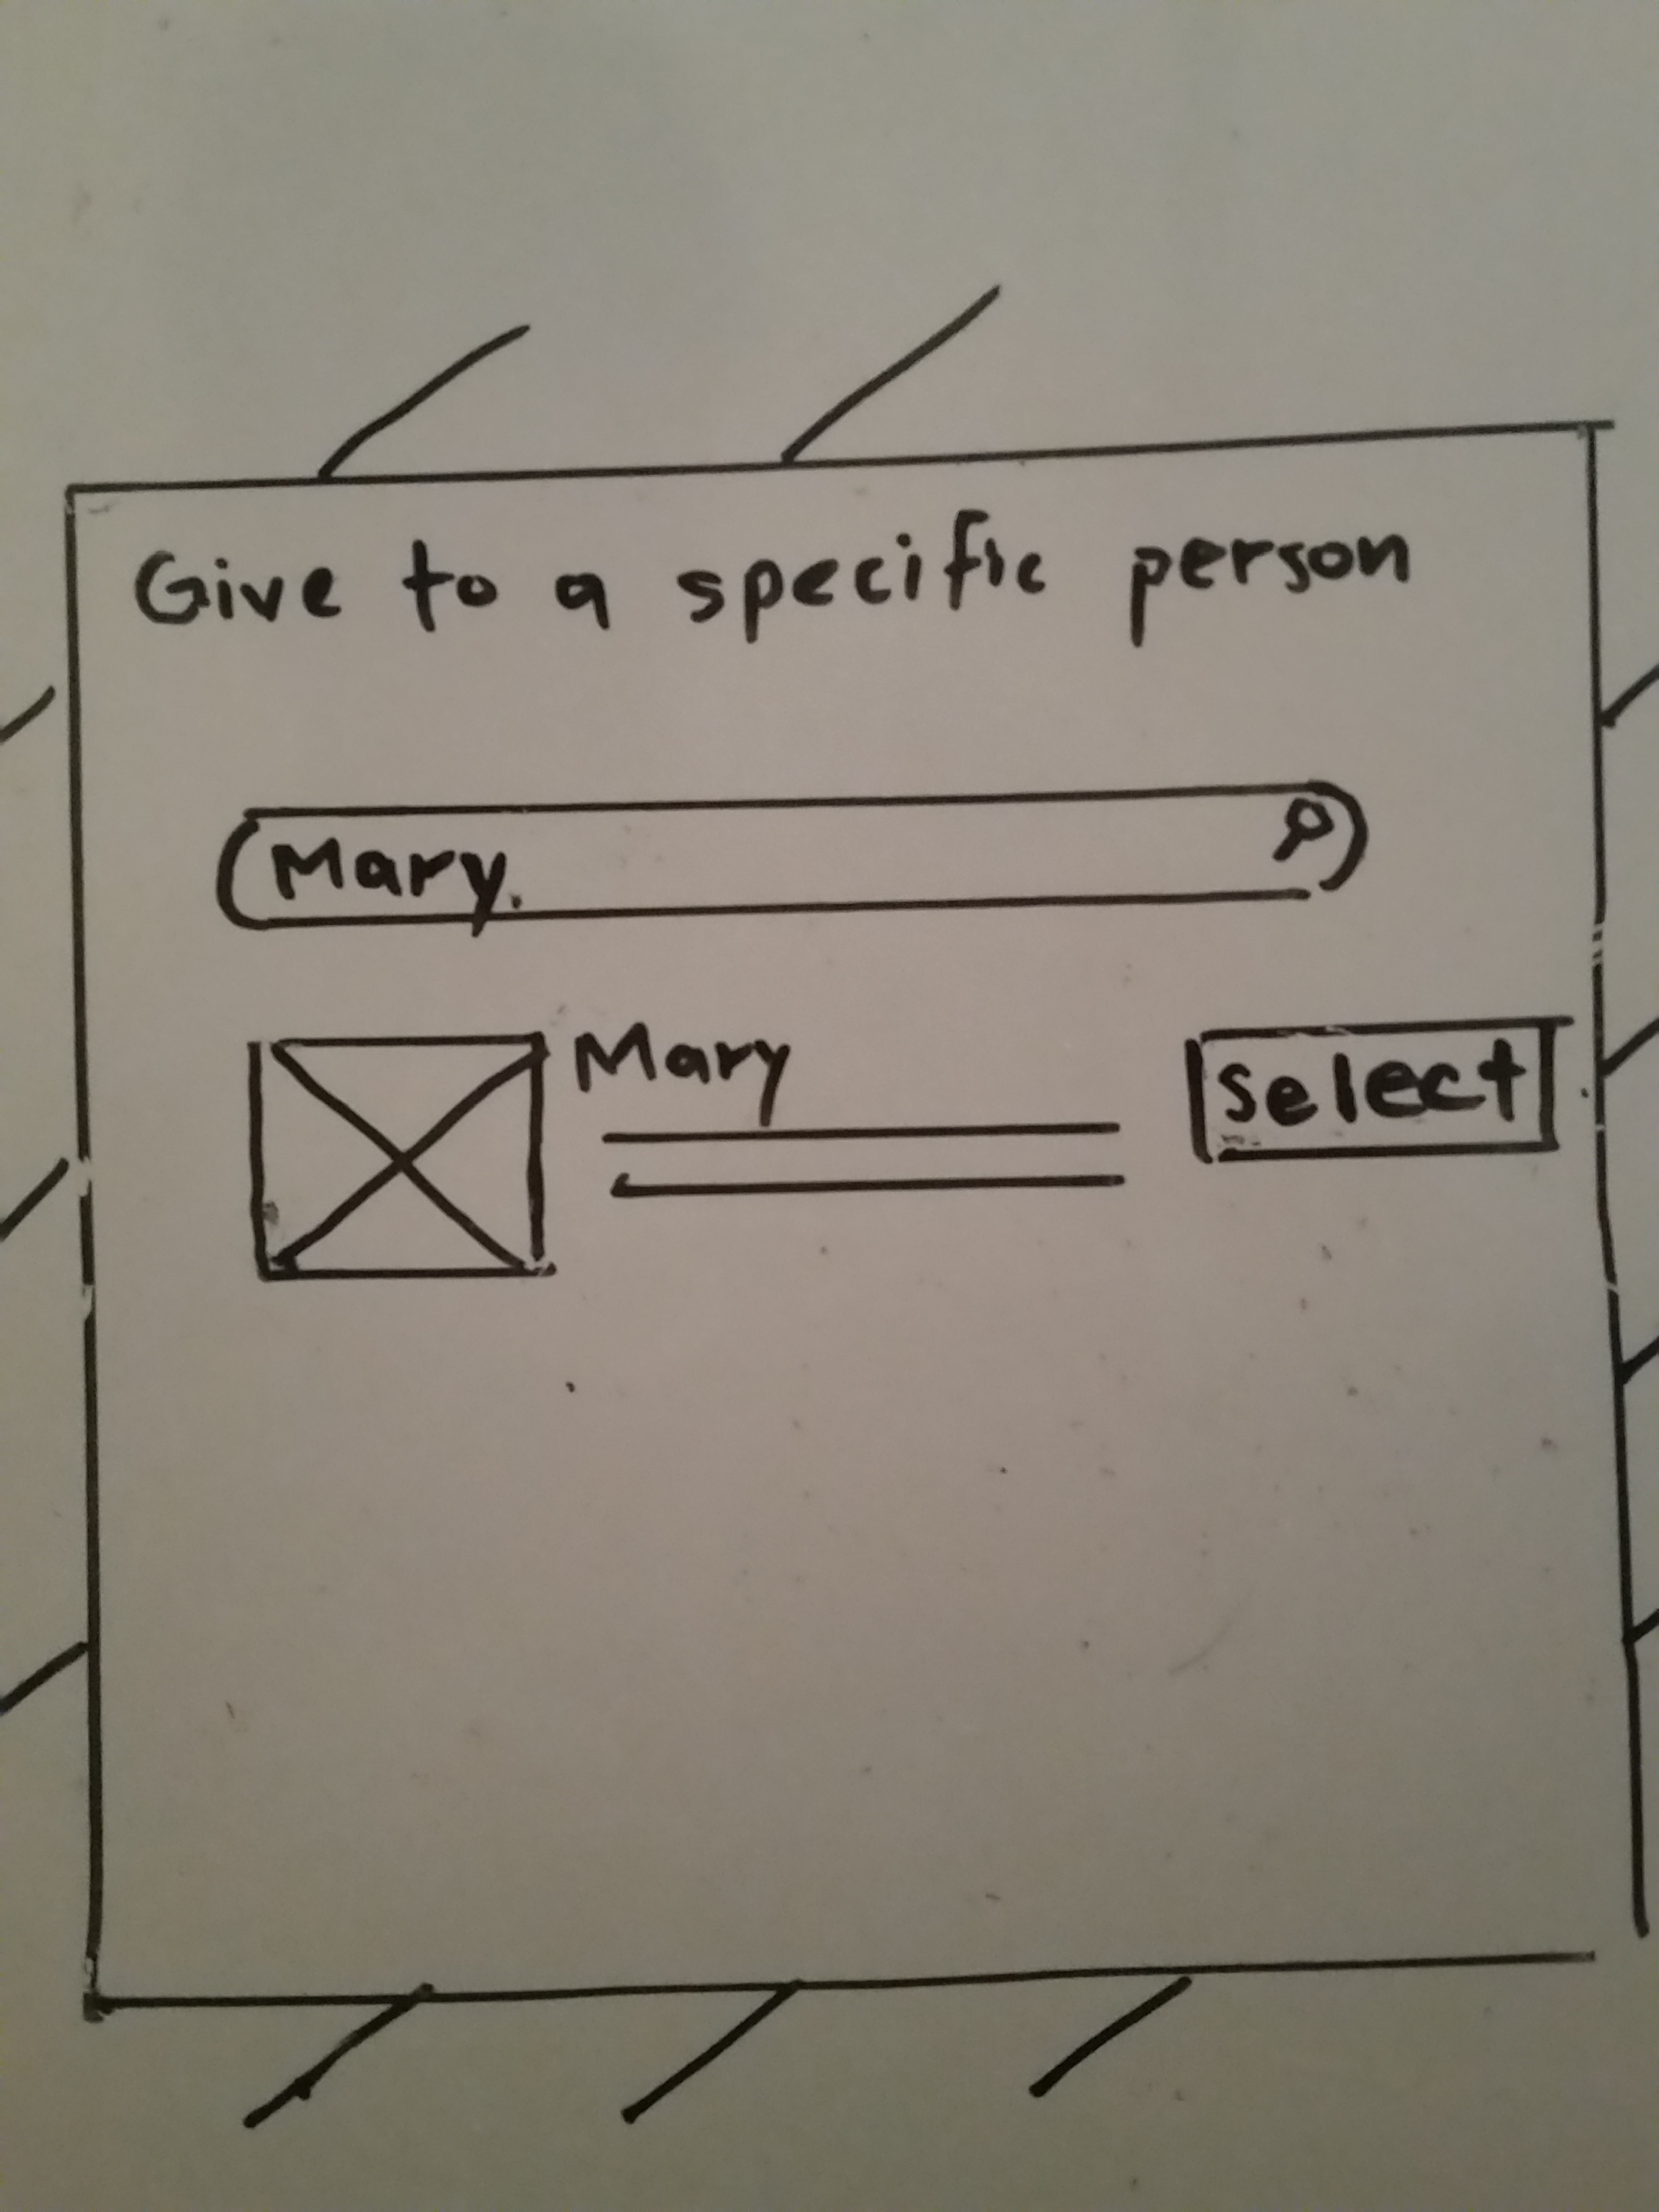 Give to a specific person
Mary.
Mary
select